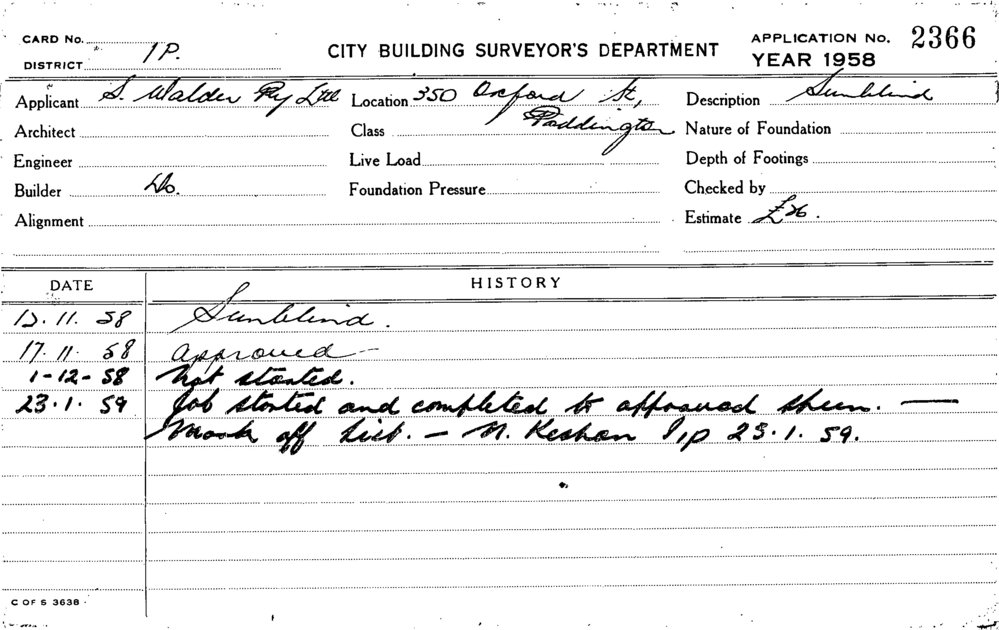 CARD No.
CITY BUILDING SURVEYOR'S DEPARTMENT
APPLICATION No. 2366
DISTRICT 1P.
YEAR 1958
Applicant S. Walder Pty Ltd Location 350 Oxford St, Description Sunblind
Paddington
Architect Class Nature of Foundation
Engineer Live Load Depth of Footings
Builder Do. Foundation Pressure Checked by
Alignment Estimate £26.
DATE HISTORY
13.11.58 Sunblind.
17.11.58 Approved
1-12-58 Not started.
23.1.59 Job started and completed to approved —
Mark off List. — 23.1.59.
C OF S 3638